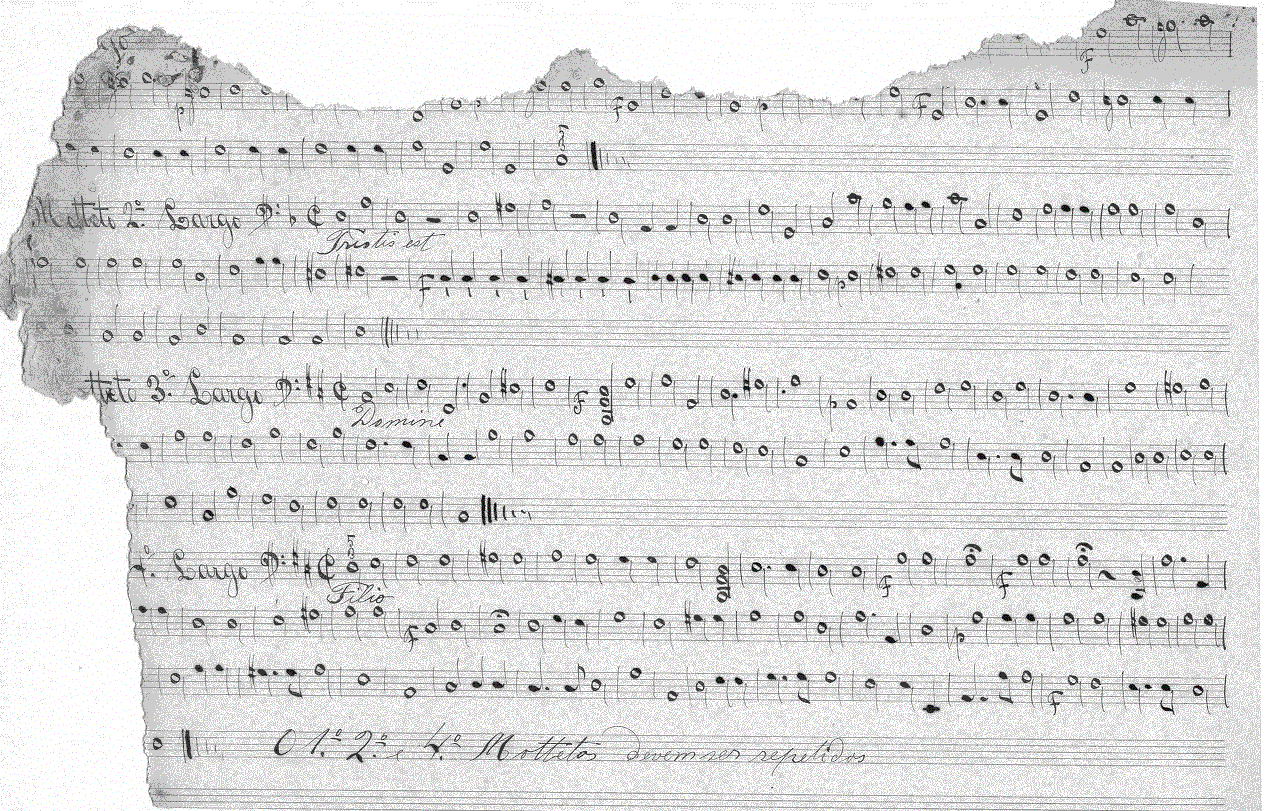 F
p F p F
Motteto 2º Largo
Tristis est
F p
tteto 3º Largo F p
Domine
4º Largo F F
Filio
F p
F
O 1º 2º e 4º Mottetos devem ser repetidos